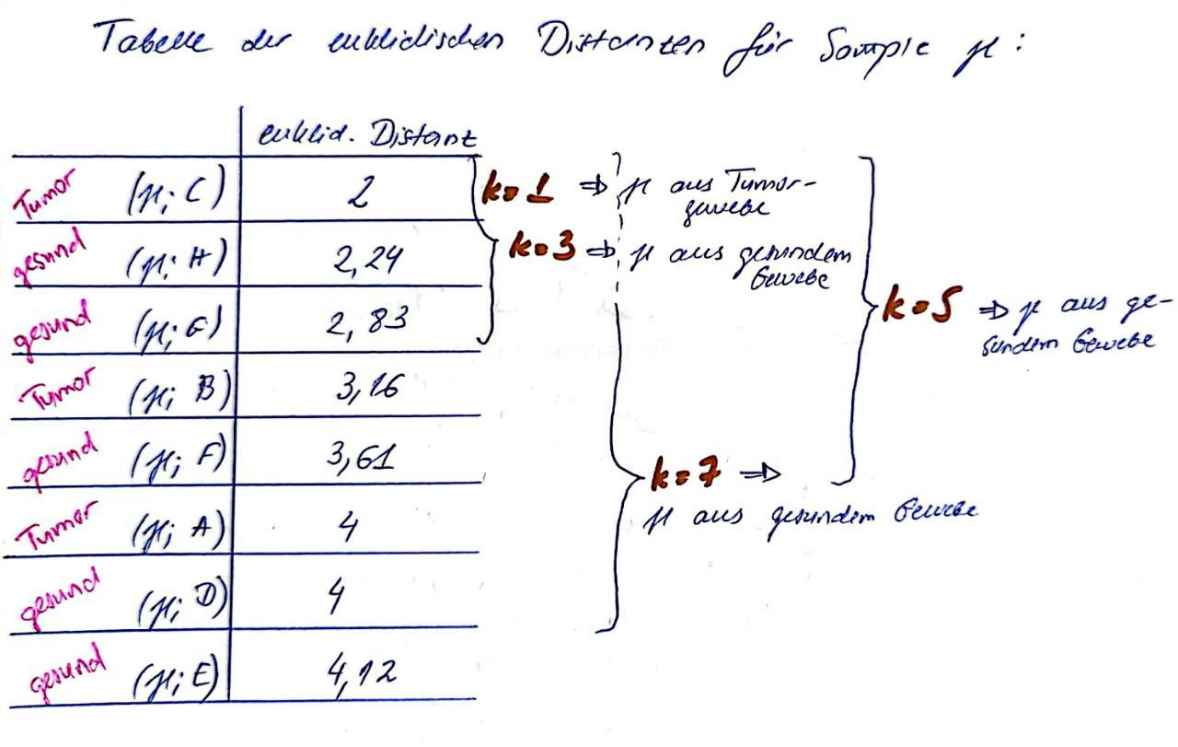 Tabelle der euklidischen Distanzen für Sample μ:
euklid. Distanz
Tumor (μ; C) 2
gesund (μ; H) 2,24
gesund (μ; G) 2,83
Tumor (μ; B) 3,16
gesund (μ; F) 3,61
Tumor (μ; A) 4
gesund (μ; D) 4
gesund (μ; E) 4,12
k=1 ⇒ μ aus Tumor-
gewebe
k=3 ⇒ μ aus gesundem
Gewebe
k=5 ⇒ μ aus ge-
sundem Gewebe
k=7 ⇒
μ aus gesundem Gewebe